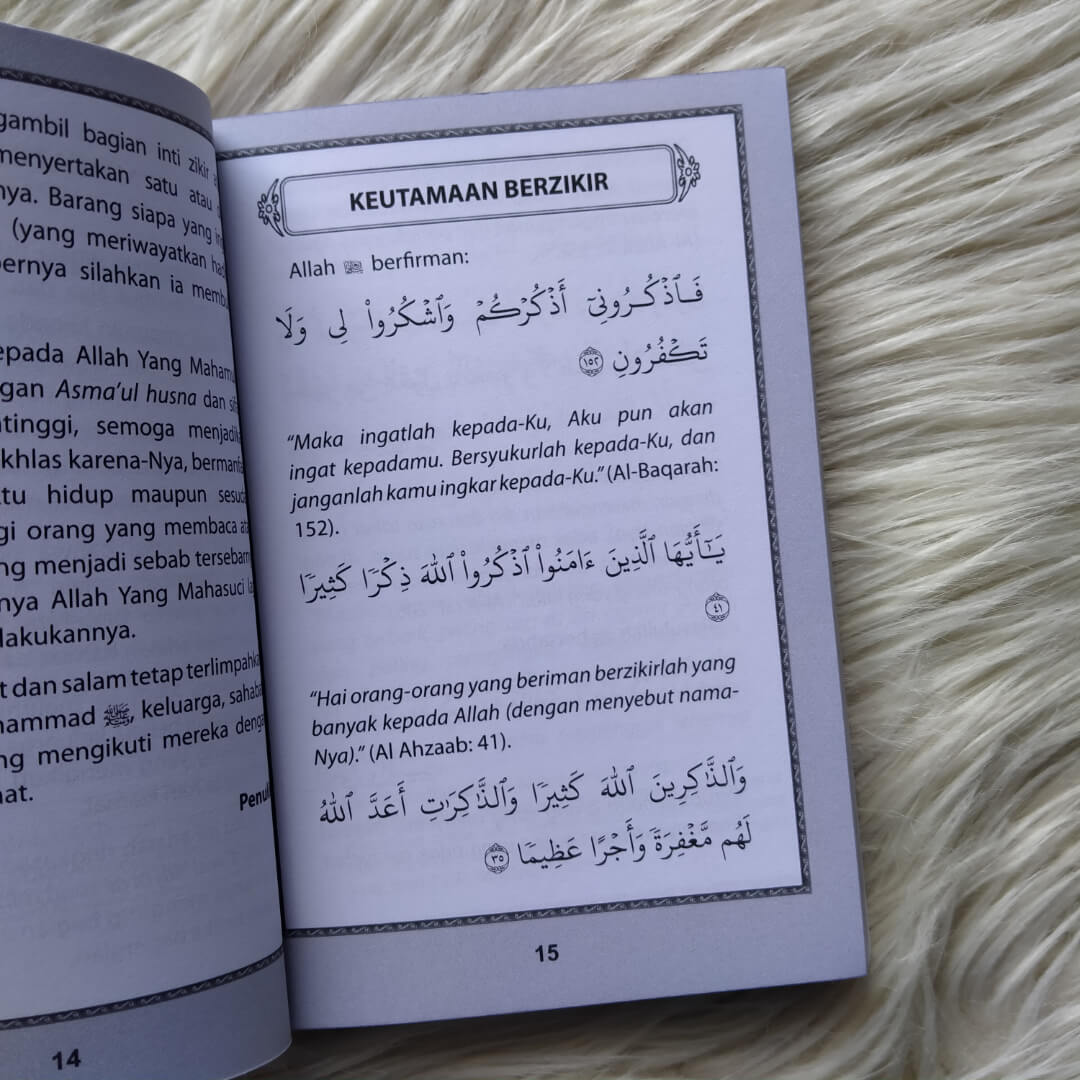 gambil bagian inti zikir
menyertakan satu atau
nya. Barang siapa yang
(yang meriwayatkan
bernya silahkan ia
epada Allah Yang
ngan Asma'ul husna dan
tinggi, semoga
khlas karena-Nya,
tu hidup maupun
gi orang yang membaca
ng menjadi sebab
nya Allah Yang Mahasuci
lakukannya.
t dan salam tetap
hammad ﷺ, keluarga,
ng mengikuti mereka
nat.
14
KEUTAMAAN BERZIKIR
Allah ﷻ berfirman:
فَٱذْكُرُونِىٓ أَذْكُرْكُمْ وَٱشْكُرُوا۟ لِى وَلَا
تَكْفُرُونِ ١٥٢
“Maka ingatlah kepada-Ku, Aku pun akan
ingat kepadamu. Bersyukurlah kepada-Ku, dan
janganlah kamu ingkar kepada-Ku.” (Al-Baqarah:
152).
يَـٰٓأَيُّهَا ٱلَّذِينَ ءَامَنُوا۟ ٱذْكُرُوا۟ ٱللَّهَ ذِكْرًا كَثِيرًا
٤١
“Hai orang-orang yang beriman berzikirlah yang
banyak kepada Allah (dengan menyebut nama-
Nya).” (Al Ahzaab: 41).
وَٱلذَّٰكِرِينَ ٱللَّهَ كَثِيرًا وَٱلذَّٰكِرَٰتِ أَعَدَّ ٱللَّهُ
لَهُم مَّغْفِرَةً وَأَجْرًا عَظِيمًا ٣٥
15